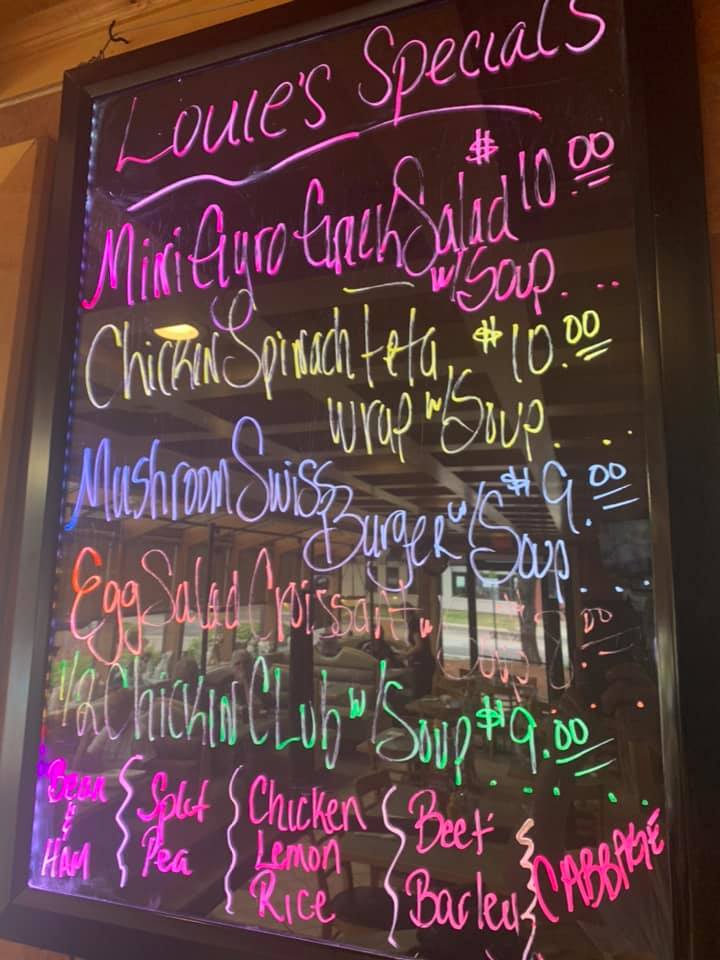 Louie's Specials
Mini Gyro Greek Salad $10.00
w/Soup...
Chicken Spinach feta $10.00
wrap w/Soup...
Mushroom Swiss $9.00
Burger w/Soup....
Egg Salad Croissait w/Soup $8.00
1/2 Chickin Club w/Soup $9.00
Bean & Ham
Split Pea
Chicken Lemon Rice
Beef Barley
CABBAGE